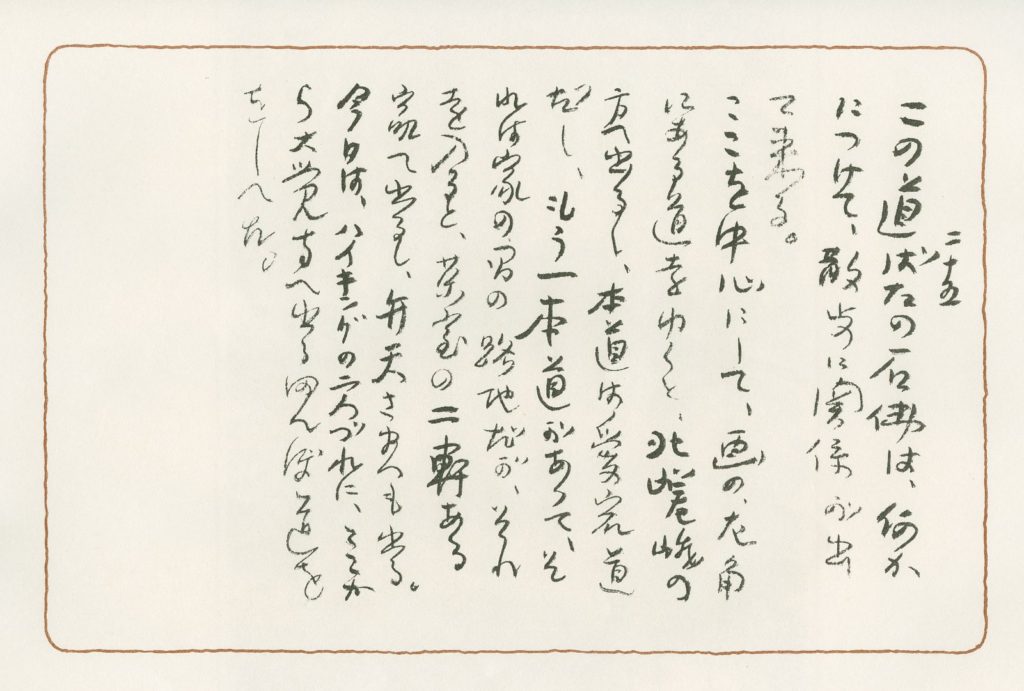 二十五
この道ばたの石佛は、何か
につけて、散歩に関係が出
て来る。
ここを中心にして、画の、左角
にある道をゆくと、北嵯峨の
方へ出るし、本道は愛宕道
だし、もう一本道があって、そ
れは家の間の路地だが、それ
を乃ると、茶室の二軒ある
家敞て出るし、弁天さまへも出る。
今日は、ハイキングの二人づれに、ここか
ら大覚寺へ出る田んぼ道を
をしへた。